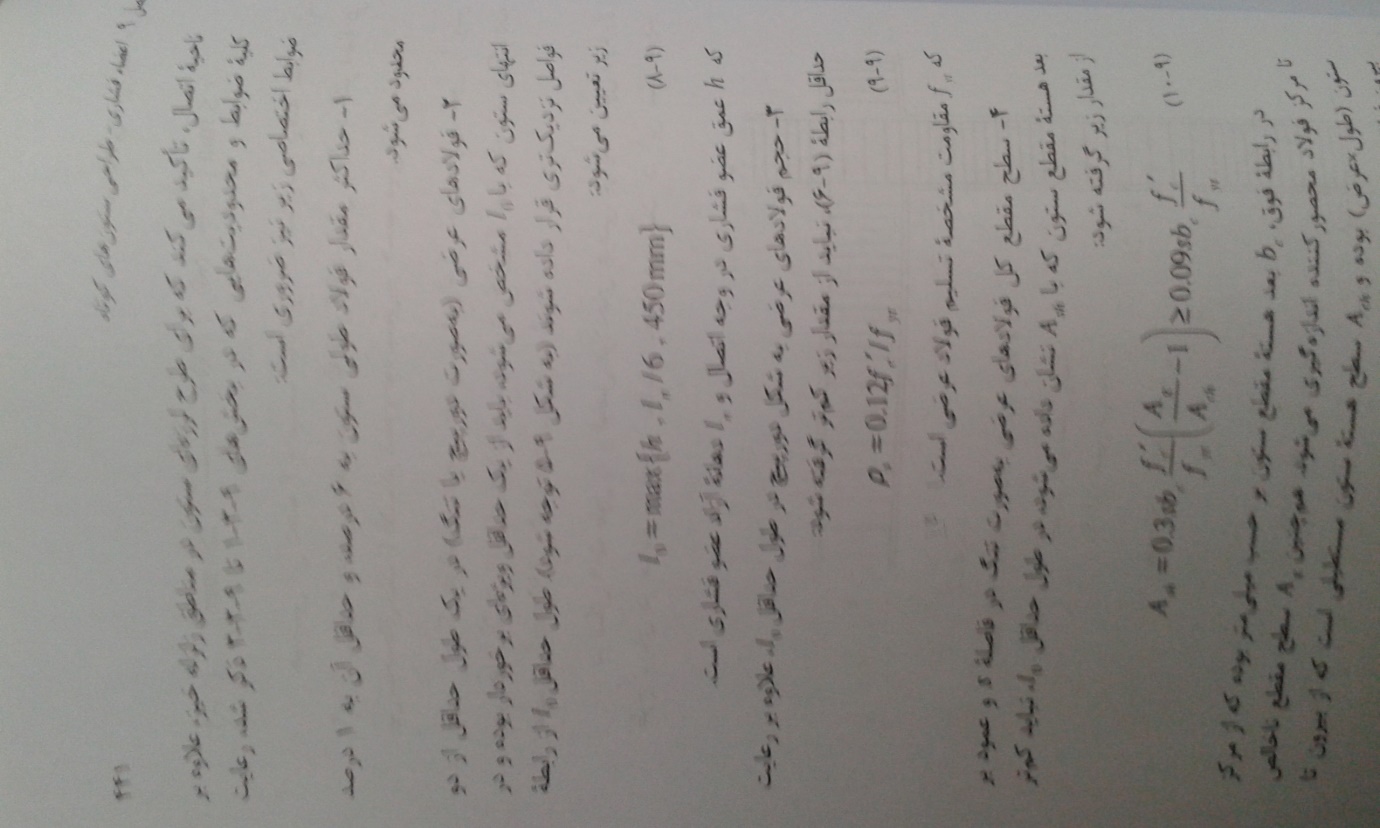 ۴۴۱
۹ اعضاء فشاری - طراحی ستون‌های کوتاه
ناحیهٔ اتصال، تأکید می‌کند که برای طرح لرزه‌ای ستون در مناطق زلزله خیز، علاوه بر
کلیهٔ ضوابط و محدودیت‌هایی که در بخش‌های ۹-۳-۱ تا ۹-۳-۳ ذکر شد، رعایت
ضوابط اختصاصی زیر نیز ضروری است:
۱- حداکثر مقدار فولاد طولی ستون به ۶ درصد و حداقل آن به ۱ درصد
محدود می‌شود.
۲- فولادهای عرضی (به‌صورت دورپیچ یا تنگ) در یک طول حداقل از دو
انتهای ستون که با l₀ مشخص می‌شوند، باید از یک حداقل ویژه‌ای برخوردار بوده و در
فواصل نزدیک‌تری قرار داده شوند (به شکل ۹-۵ توجه شود). طول حداقل l₀ از رابطهٔ
زیر تعیین می‌شود:
l₀ = max{h , lₙ/6 , 450mm} (۹-۸)
که h عمق عضو فشاری در وجه اتصال و lₙ دهانهٔ آزاد عضو فشاری است.
۳- حجم فولادهای عرضی به شکل دورپیچ در طول حداقل l₀، علاوه بر رعایت
حداقل رابطهٔ (۹-۶)، نباید از مقدار زیر کم‌تر گرفته شود:
ρₛ = 0.12f′c / fyt (۹-۹)
که fyt مقاومت مشخصهٔ تسلیم فولاد عرضی است.
۴- سطح مقطع کل فولادهای عرضی به‌صورت تنگ در فاصلهٔ s و عمود بر
بعد هستهٔ مقطع ستون که با Ash نشان داده می‌شود، در طول حداقل l₀، نباید کم‌تر
از مقدار زیر گرفته شود:
Ash = 0.3sbc f′c/fyt (Ag/Ach − 1) ≥ 0.09sbc f′c/fyt (۹-۱۰)
در رابطهٔ فوق، bc بعد هستهٔ مقطع ستون بر حسب میلی‌متر بوده که از مرکز
تا مرکز فولاد محصورکننده اندازه‌گیری می‌شود. هم‌چنین Ag سطح مقطع ناخالص
ستون (طول×عرض) بوده و Ach سطح هستهٔ ستون مستطیلی است که از بیرون تا